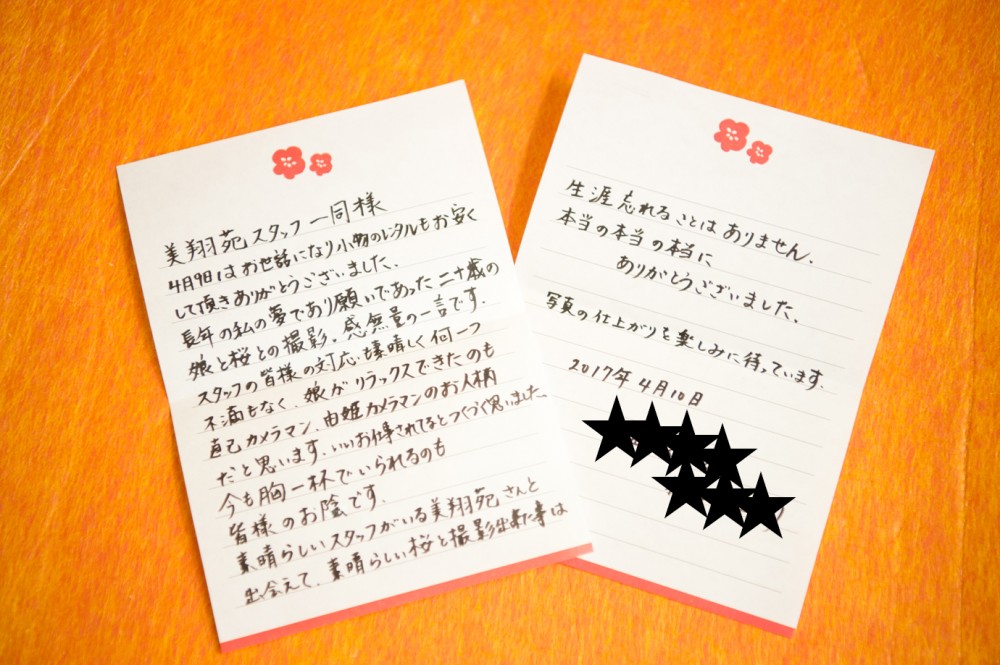 美翔苑スタッフ一同様
4月9日はお世話になり小物のレンタルもお安く
して頂きありがとうございました、
長年の私の夢であり願いであった二十歳の
娘と桜との撮影。感無量の一言です。
スタッフの皆様の対応も素晴しく何一つ
不満もなく、娘がリラックスできたのも
直己カメラマン、由姫カメラマンのお人柄
だと思います、いいお仕事されてるとつくづく思いました。
今も胸一杯でいられるのも
皆様のお陰です。
素晴らしいスタッフがいる美翔苑さんと
出会えて、素晴らしい桜と撮影出来た事は
生涯忘れることはありません、
本当の本当の本当に
ありがとうございました、
写真の仕上がりを楽しみに待っています。
2017年4月10日